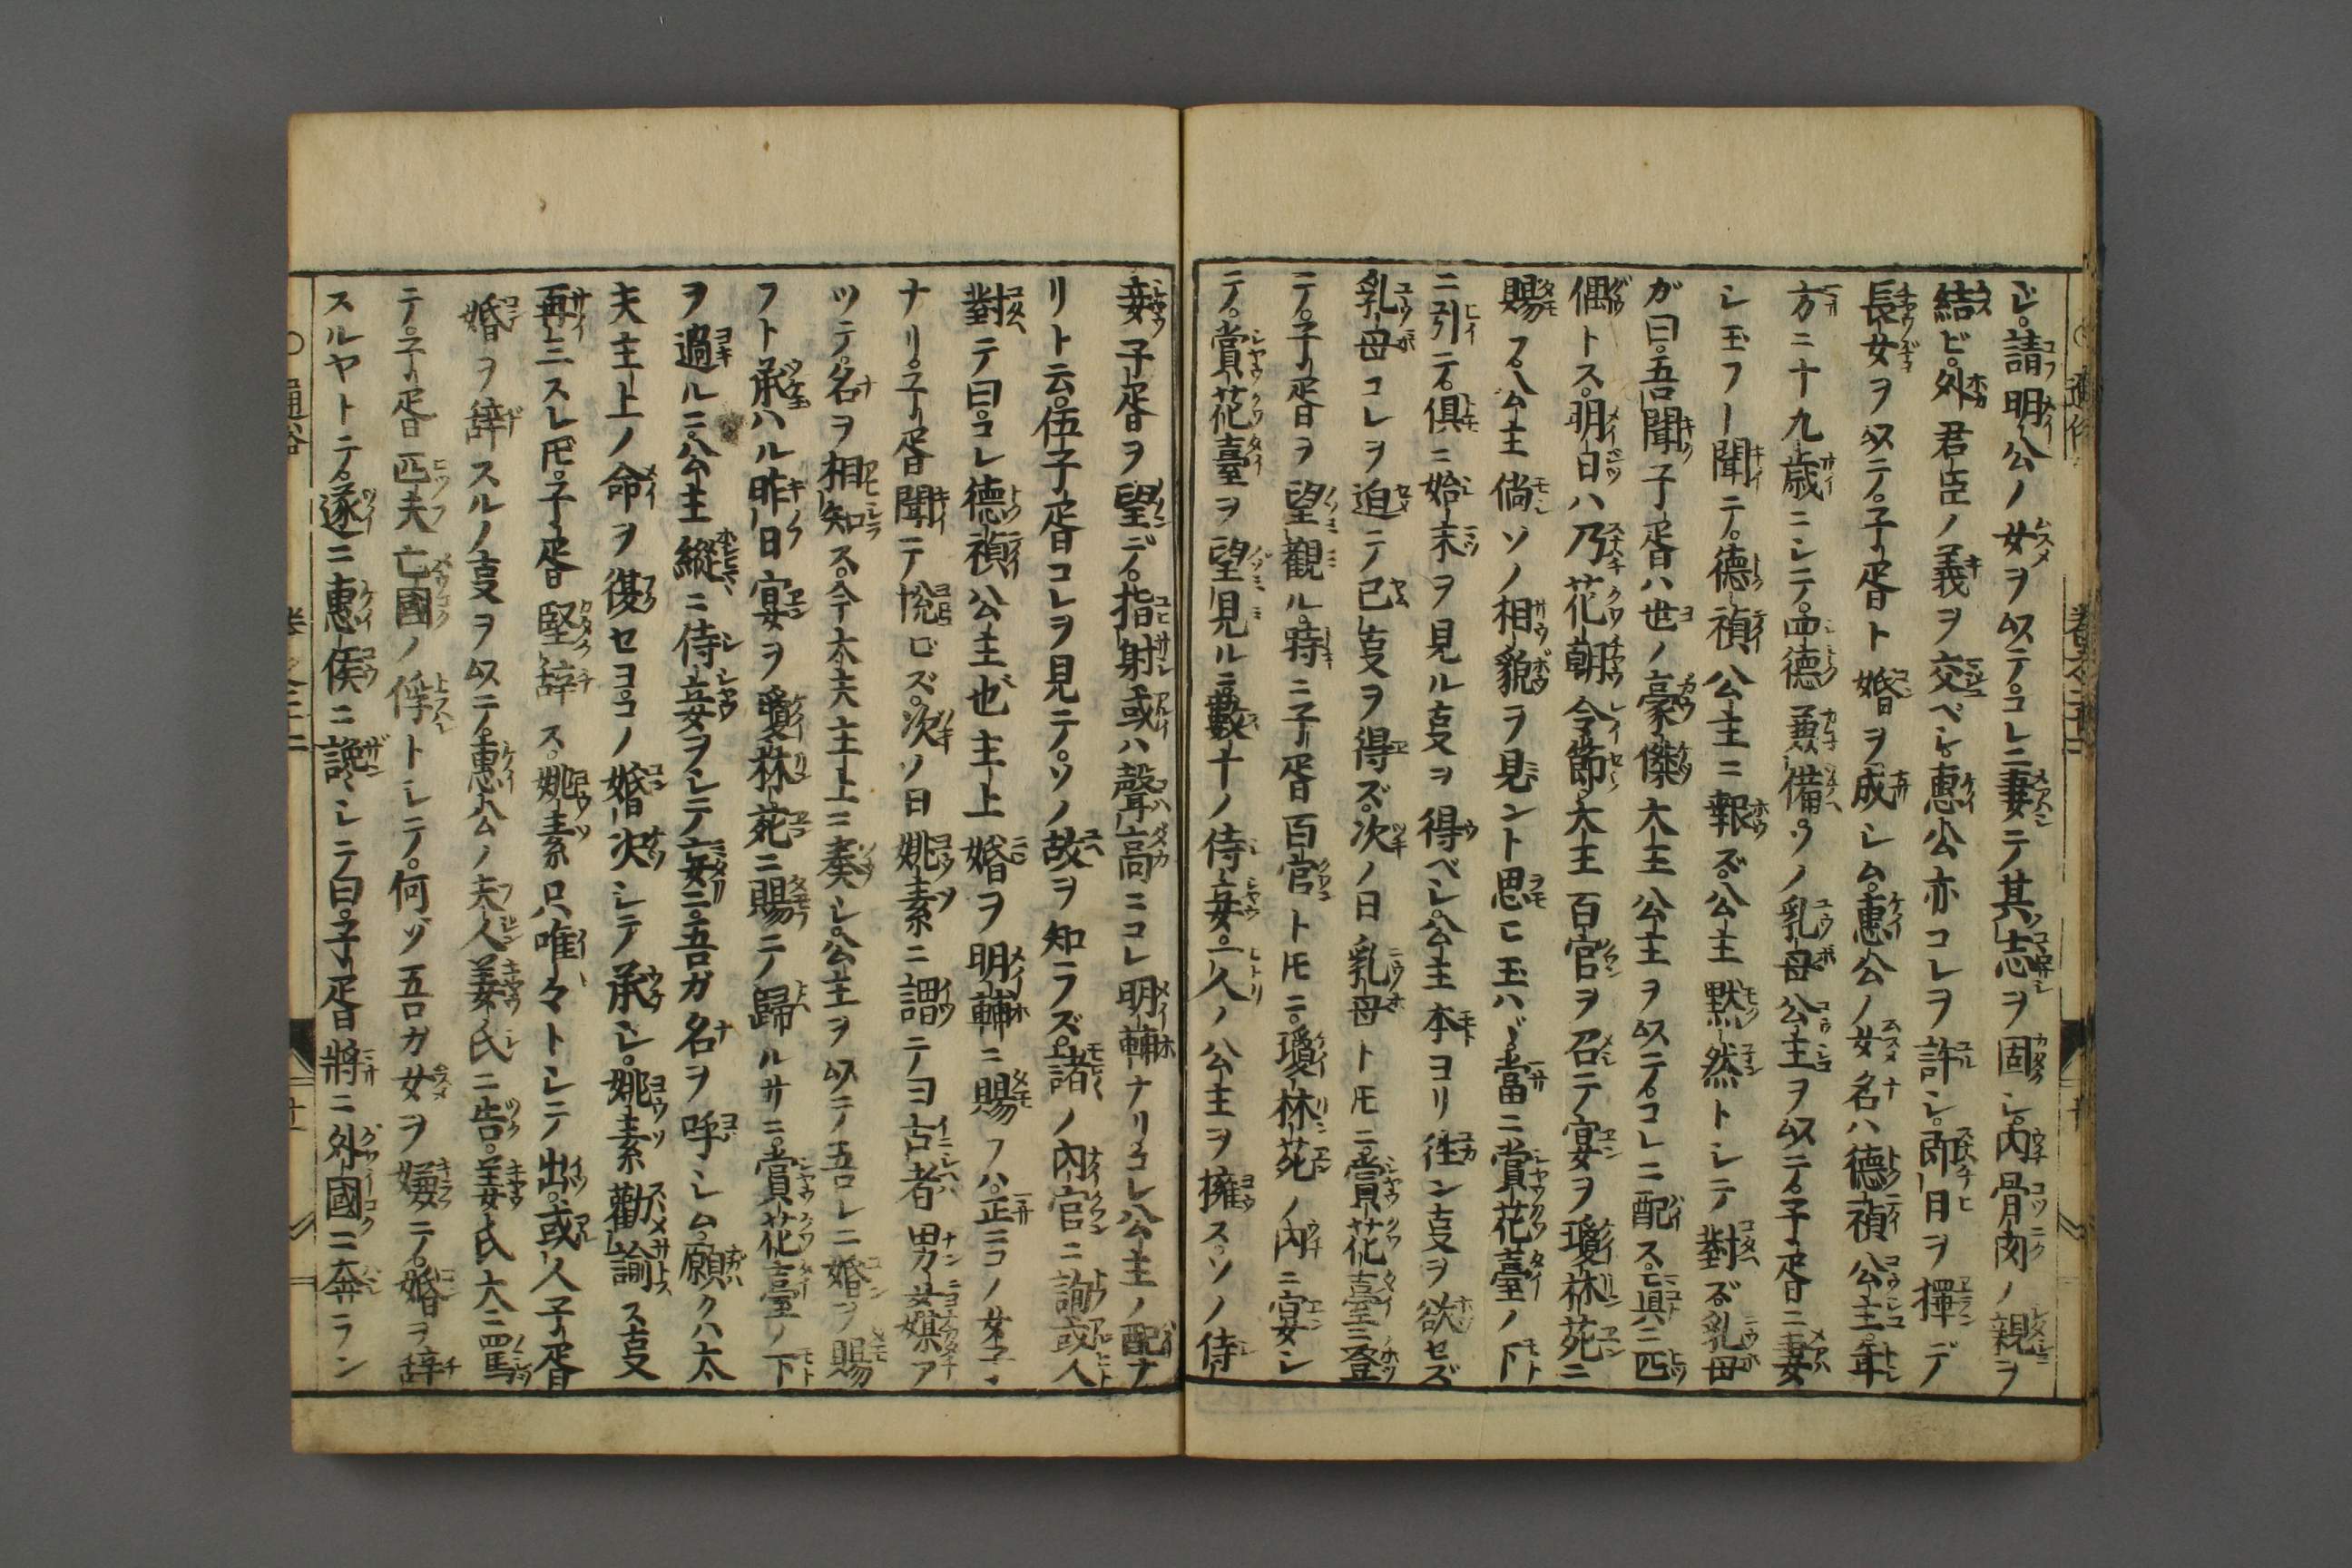 ジ。請明公ノ女ヲ以テ。コレニ妻テ其志ヲ固シ。内骨肉ノ親ヲ
結ビ。外君臣ノ義ヲ交ベシ。惠公亦コレヲ許シ。即日ヲ擇デ
長女ヲ以テ。子胥ト婚ヲ成シム。惠公ノ女名ハ德禎公主。年
方ニ十九歳ニシテ。四德兼備。ソノ乳母公主ヲ以テ。子胥ニ妻
シ玉フ┐聞テ。德禎公主ニ報ズ。公主默然トシテ對ズ。乳母
ガ曰。吾聞子胥ハ世ノ豪傑大王公主ヲ以テ。コレニ配ス。眞ニ匹
偶トス。明日ハ乃花朝令節。大王百官ヲ召テ宴ヲ瓊林苑ニ
賜フ。公主倘ソノ相貌ヲ見ント思ヒ玉ハヾ。當ニ賞花臺ノ下
ニ引テ。俱ニ始末ヲ見ル亊ヲ得ベシ。公主本ヨリ往ン亊ヲ欲セズ
乳母コレヲ迫テ已亊ヲ得ズ。次ノ日乳母ト𪜈ニ。賞花臺ニ登
テ。子胥ヲ望觀ル。時ニ子胥百官ト𪜈ニ。瓊林苑ノ内ニ宴シ
テ。賞花臺ヲ望見ルニ。數十ノ侍妾。一人ノ公主ヲ擁ス。ソノ侍
妾子胥ヲ望デ。指射或ハ聲高ニコレ明輔ナリ。コレ公主ノ配ナ
リト云。伍子胥コレヲ見テ。ソノ故ヲ知ラズ。諸ノ内官ニ詢。或人
對テ曰。コレ德禎公主也。主上婚ヲ明輔ニ賜フハ。正ニコノ女子
ナリ。子胥聞テ悦ビズ。次ノ日姚素ニ謂テヨ古者男女媒ア
ツテ。名ヲ相知ス。今太夫主上ニ奏シ。公主ヲ以テ吾レニ婚ヲ賜
フト承ハル昨日宴ヲ瓊林苑ニ賜テ歸ルサニ。賞花臺ノ下
ヲ過ルニ。公主縱ニ侍妾ヲシテ妄ニ。吾ガ名ヲ呼シム。願クハ太
夫主上ノ命ヲ復セヨ。コノ婚決シテ承シ。姚素勸諭ス亊
再三スレ𪜈。子胥堅辞ス。姚素只唯々トシテ出。或人子胥
婚ヲ辞スルノ亊ヲ以テ。惠公ノ夫人姜氏ニ告。姜氏大ニ罵
テ。子胥匹夫亡國ノ俘トシテ。何ゾ吾カ女ヲ嫌テ。婚ヲ辞
スルヤトテ。遂ニ惠侯ニ讒シテ曰。子胥將ニ外國ニ奔ラン
通俗